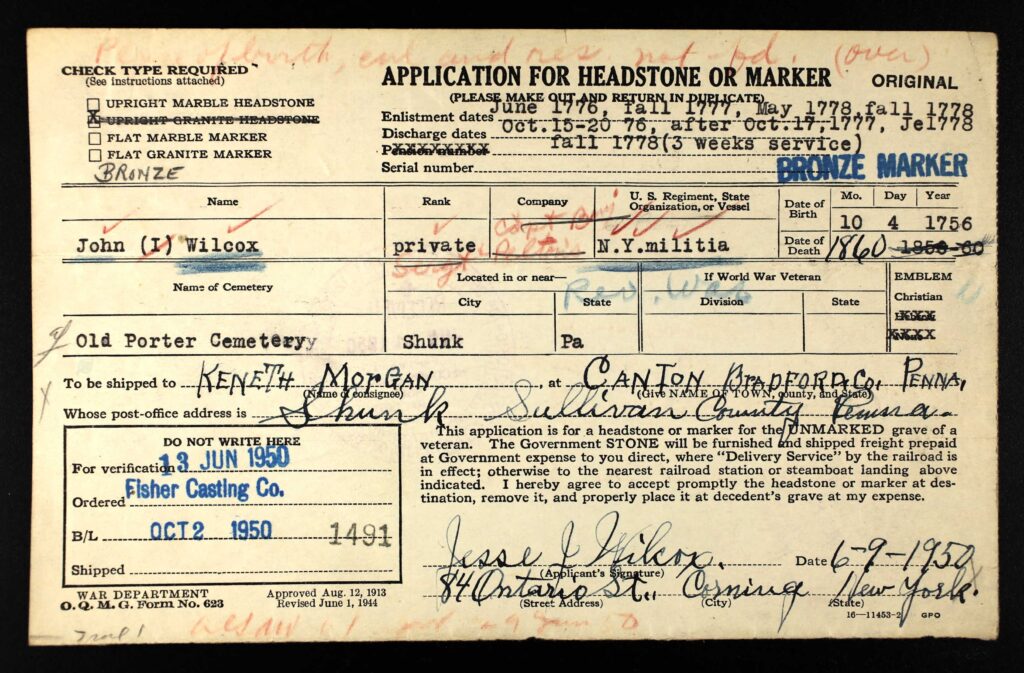 Place of birth, and res not fd. (over)
CHECK TYPE REQUIRED
(See instructions attached)
UPRIGHT MARBLE HEADSTONE
X UPRIGHT GRANITE HEADSTONE
FLAT MARBLE MARKER
FLAT GRANITE MARKER
BRONZE
APPLICATION FOR HEADSTONE OR MARKER
(PLEASE MAKE OUT AND RETURN IN DUPLICATE)
ORIGINAL
Enlistment dates June 1776, fall 1777, May 1778, fall 1778
Discharge dates Oct.15-20 76, after Oct.17,1777, Je1778
Pension number XXXXXXXX fall 1778(3 weeks service)
Serial number
BRONZE MARKER
Name Rank Company U. S. Regiment, State Organization, or Vessel
Date of Birth Mo. Day Year
10 4 1756
John (I) Wilcox private N.Y.militia
Date of Death 1860 1858-60
Sergt
Capt
Name of Cemetery
Located in or near—
City State
If World War Veteran
Division State
Rev. War
EMBLEM
Christian
Hebrew XXX
None XXXX
Old Porter Cemeteryy Shunk Pa
To be shipped to KENETH MORGAN, at CANTON BRADFORD Co, PENNA,
(Name of consignee) (Give NAME OF TOWN, county, and State)
Whose post-office address is Shunk Sullivan County Penna.
DO NOT WRITE HERE
For verification 13 JUN 1950
Ordered Fisher Casting Co.
B/L OCT 2 1950 1491
Shipped
This application is for a headstone or marker for the UNMARKED grave of a
veteran. The Government STONE will be furnished and shipped freight prepaid
at Government expense to you direct, where "Delivery Service" by the railroad is
in effect; otherwise to the nearest railroad station or steamboat landing above
indicated. I hereby agree to accept promptly the headstone or marker at des-
tination, remove it, and properly place it at decedent's grave at my expense.
Jesse J Wilcox. Date 6-9-1950
(Applicant's Signature)
84 Ontario St., Corning New York.
(Street Address) (City) (State)
WAR DEPARTMENT
O. Q. M. G. Form No. 623
Approved Aug. 12, 1913
Revised June 1, 1944
16—11453-2 GPO